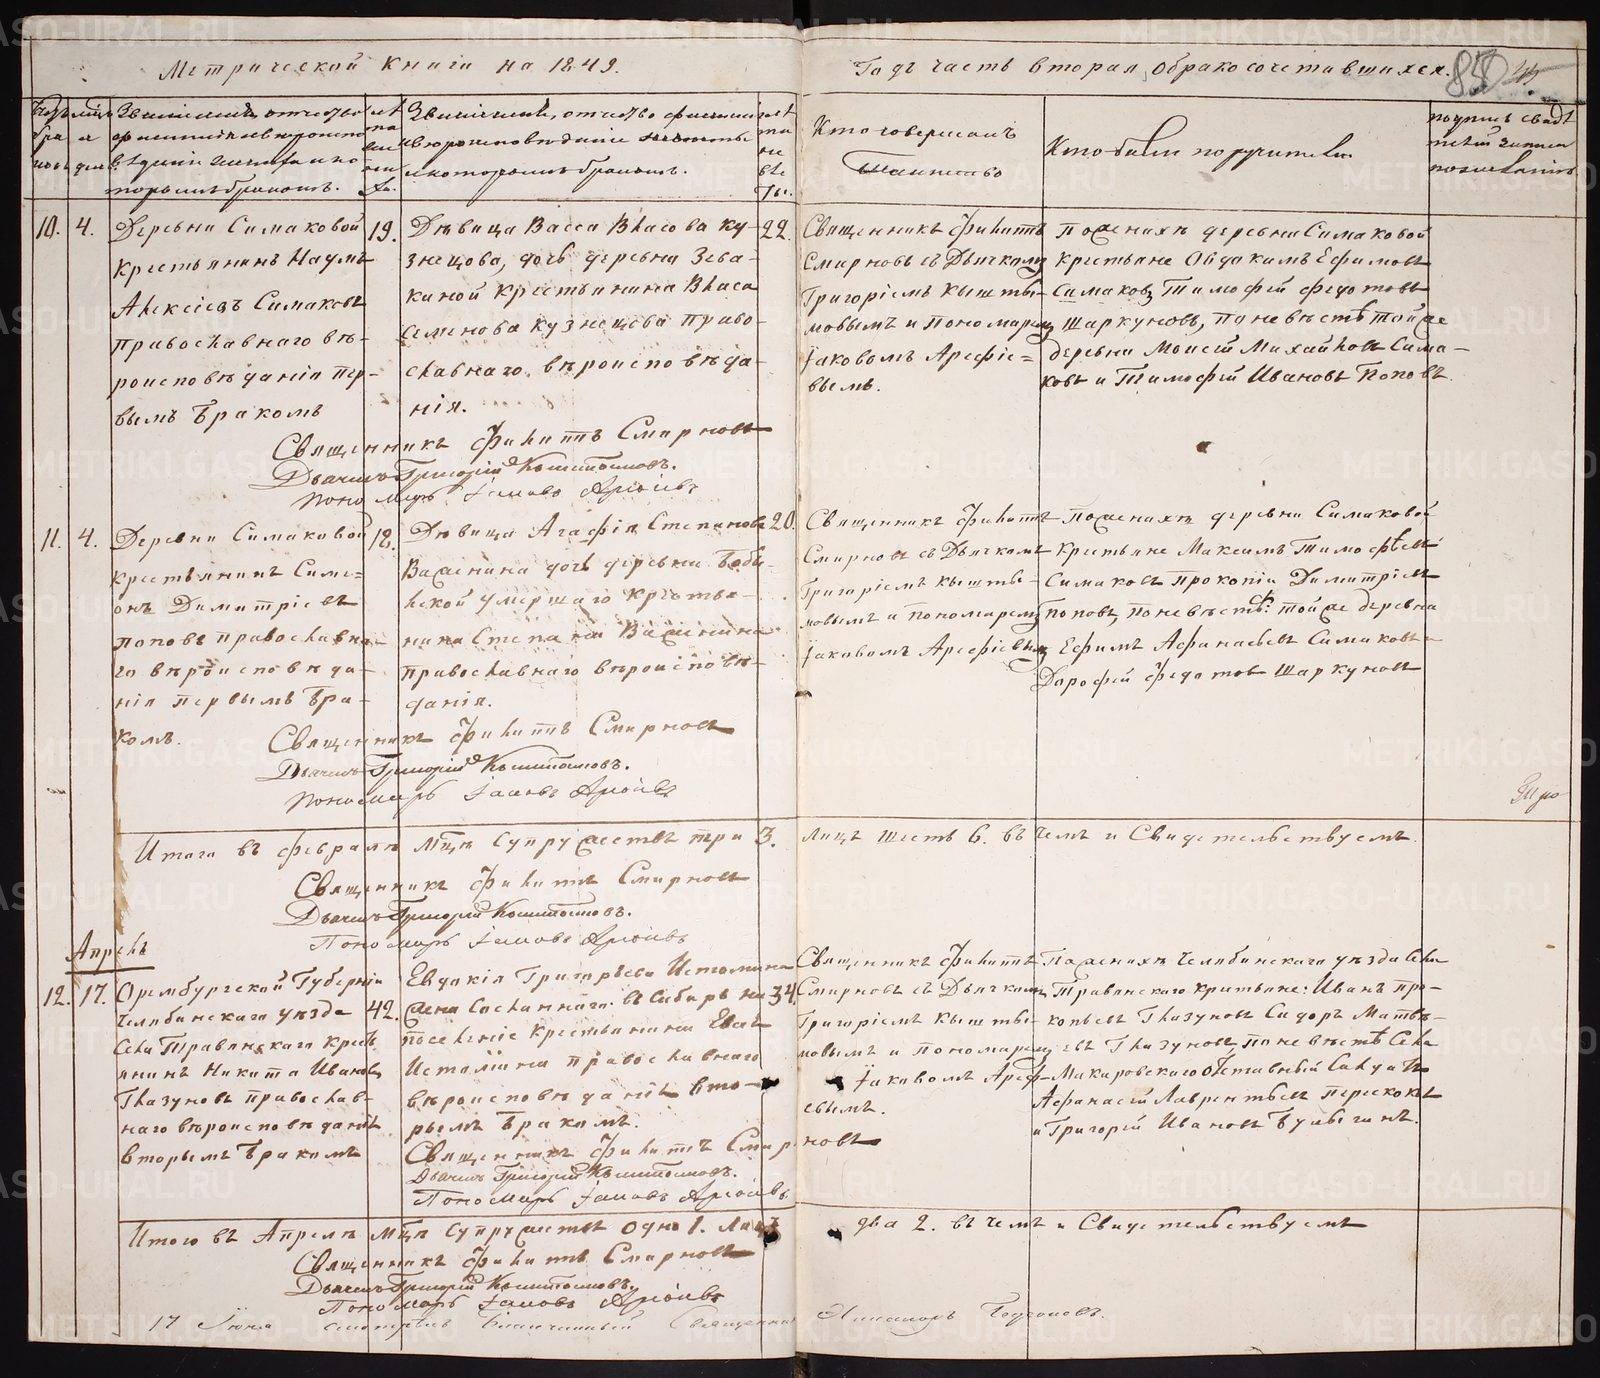 Метрической Книги на 1849.
Годъ часть вторая, Обракосочетавшихся.
Кто совершалъ
Таинство
Кто были поручители
10. 4.
Деревни Симаковой
Крестьянинъ Наумъ
Алексеевъ Симаковъ
православнаго вѣ-
роисповѣданія пер-
вымъ бракомъ
19.
Дѣвица Васса Власова Ку-
знецова, дочь деревни Зева-
киной крестьянина Власа
Семенова Кузнецова право-
славнаго вѣроисповѣда-
нія.
22.
Священникъ Филиппъ
Смирновъ съ Дьячкомъ
Григоріемъ Кышты-
мовымъ и Пономаремъ
Іаковомъ Арефіе-
вымъ.
По женихѣ деревни Симаковой
Крестьяне Овдакимъ Ефимовъ
Симаковъ Тимофей Федотовъ
Шаркуновъ, по невѣстѣ той же
деревни Моисей Михайловъ Сима-
ковъ и Тимофей Ивановъ Поповъ.
Священникъ Филиппъ Смирновъ
Дьячекъ Григорій Кыштымовъ.
Пономарь Іаковъ Арефіевъ
11. 4.
Деревни Симаковой
крестьянинъ Симе-
онъ Димитріевъ
Поповъ православна-
го вѣроисповѣда-
нія первымъ бра-
комъ.
18.
Дѣвица Агафія Степанова
Важенина дочь деревни Бобы-
лской умершаго крестья-
нина Степана Важенина
православнаго вѣроисповѣ-
данія.
20.
Священникъ Филиппъ
Смирновъ съ Дьячкомъ
Григоріемъ Кышты-
мовымъ и Пономаремъ
Іаковомъ Арефіевымъ
По женихѣ деревни Симаковой
Крестьяне Максимъ Тимофѣевъ
Симаковъ Прокопій Димитріевъ
Поповъ, по невѣстѣ: той же деревни
Ефимъ Афанасьевъ Симаковъ
Дорофей Федотовъ Шаркуновъ
Священникъ Филиппъ Смирновъ
Дьячекъ Григорій Кыштымовъ.
Пономарь Іаковъ Арефіевъ
Итого въ февралѣ мцѣ супружествъ три 3. Лицъ шесть 6. въ чемъ и Свидетельствуемъ.
Священникъ Филиппъ Смирновъ
Дьячекъ Григорій Кыштымовъ.
Пономарь Іаковъ Арефіевъ
Апрель
12. 17.
Оренбургской Губерніи
Челябинскаго уѣзда
Села Травянскаго крест-
янинъ Никита Ивановъ
Глазуновъ православ-
наго вѣроисповѣданія
вторымъ бракомъ
42.
Евдокія Григорьева Истомина
жена сосланнаго въ Сибирь на
поселеніе крестьянина Евсѣя
Истомина православнаго
вѣроисповѣданія вто-
рымъ бракомъ.
34.
Священникъ Филиппъ
Смирновъ съ Дьячкомъ
Григоріемъ Кышты-
мовымъ и Пономаремъ
Іаковомъ Ареф-
евымъ.
По женихѣ Челябинскаго уѣзда Села
Травянскаго Критьяне: Иванъ Про-
копьевъ Глазуновъ Сидоръ Матвѣ-
евъ Глазуновъ, по невѣстѣ Села
Макаровскаго отставный Солдатъ
Афанасей Лаврентьевъ Перескоковъ
и Григорій Ивановъ Булыгинъ.
Священникъ Филиппъ Смирновъ
Дьячекъ Григорій Кыштымовъ.
Пономарь Іаковъ Арефіевъ
Итого въ Апрелѣ мцѣ супружествъ одно 1. Лицъ два 2. въ чемъ и Свидетельствуемъ
Священникъ Филиппъ Смирновъ
Дьячекъ Григорій Кыштымовъ.
Пономарь Іаковъ Арефіевъ
17 Іюня смотрелъ Благочинный Священникъ
METRIKI.GASO-URAL.RU